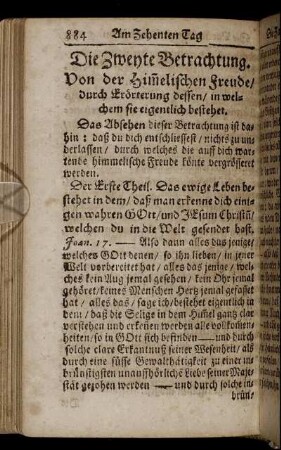 884 Am Zehenten Tag
Die Zweyte Betrachtung.
Von der Him̃elischen Freude/
durch Erörterung dessen/ in wel-
chem sie eigentlich bestehet.
Das Absehen dieser Betrachtung ist da-
hin: daß du dich entschliessest/ nichts zu un-
derlassen/ durch welches die auff dich war-
tende himmelische Freude könte vergrösseret
werden.
Der Erste Theil. Das ewige Leben be-
stehet in dem/ daß man erkenne dich eini-
gen wahren GOtt/ und JEsum Christũ/
welchen du in die Welt gesendet hast,
Joan. 17. — Also dann alles das jenige/
welches GOtt denen/ so ihn lieben/ in jener
Welt vorbereitet hat/ alles das jenige/ wel-
ches kein Aug jemal gesehen/ kein Ohr jemal
gehöret/ keines Menschen Hertz jemal gefasset
hat/ alles das/ sage ich/ bestehet eigentlich in
dem/ daß die Selige in dem Him̃el gantz clar
verstehen und erkeñen werden alle vollkom̃en-
heiten/ so in GOtt sich befinden — und durch
solche clare Erkantnuß seiner Wesenheit/ als
durch eine süsse Gewalthätigkeit zu einer in-
brünstigsten unauffhörlichẽ Liebe seiner Maje-
stät gezohen werden — und durch solche in-
brün-